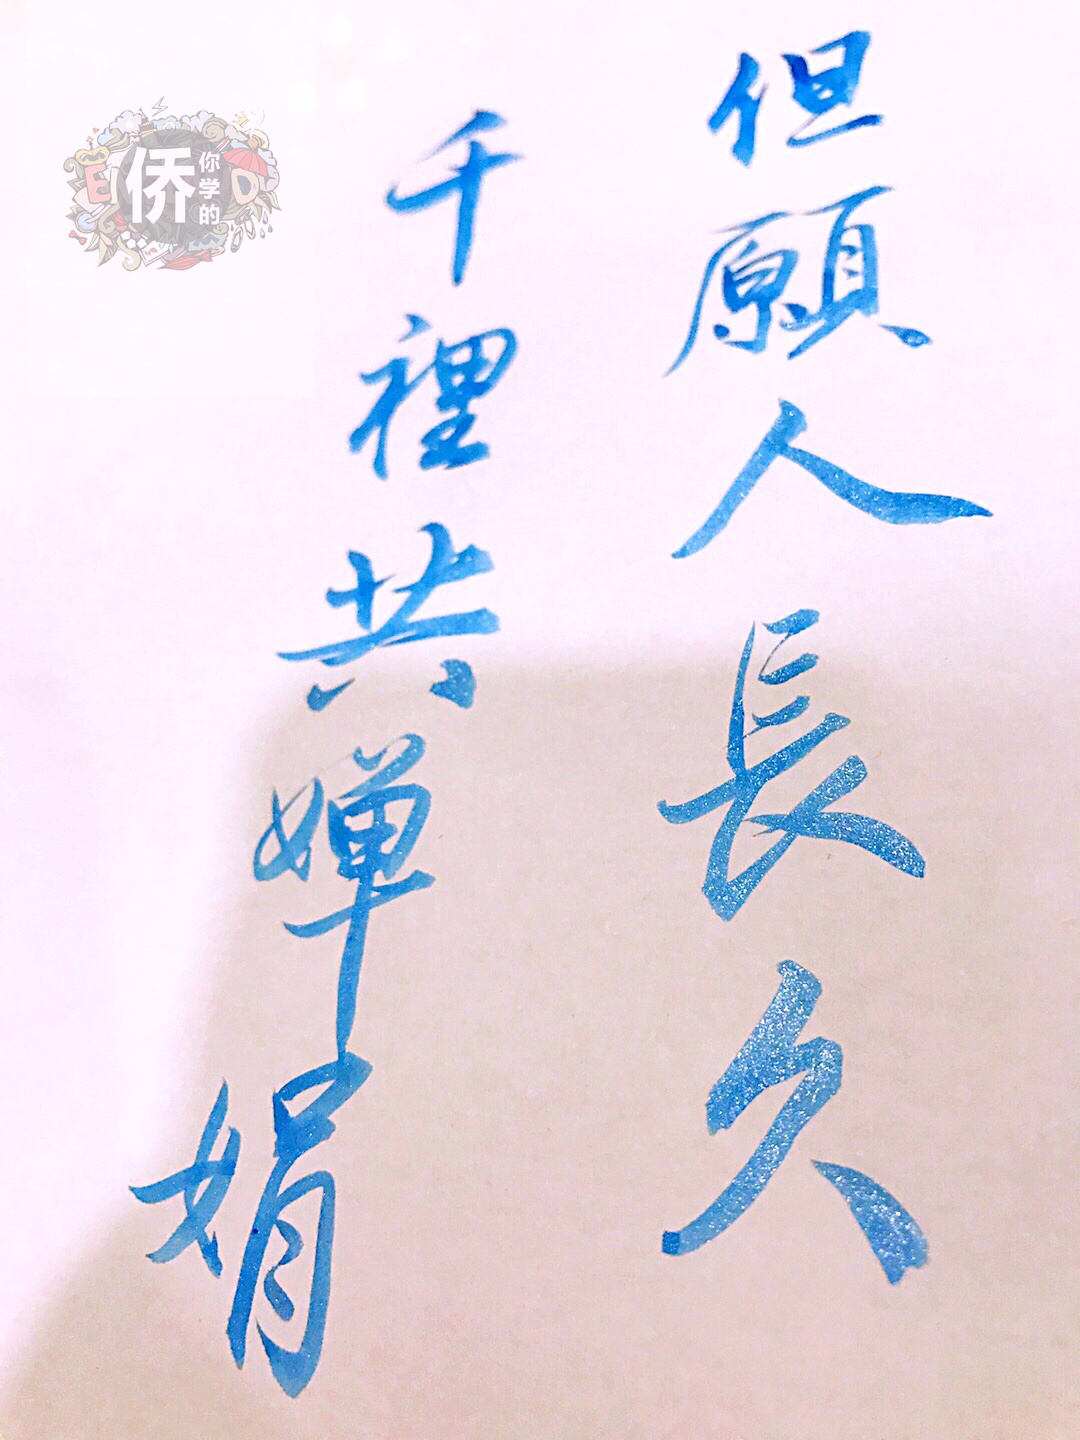 但願人長久
千裡共嬋娟
侨
你学的
E
D